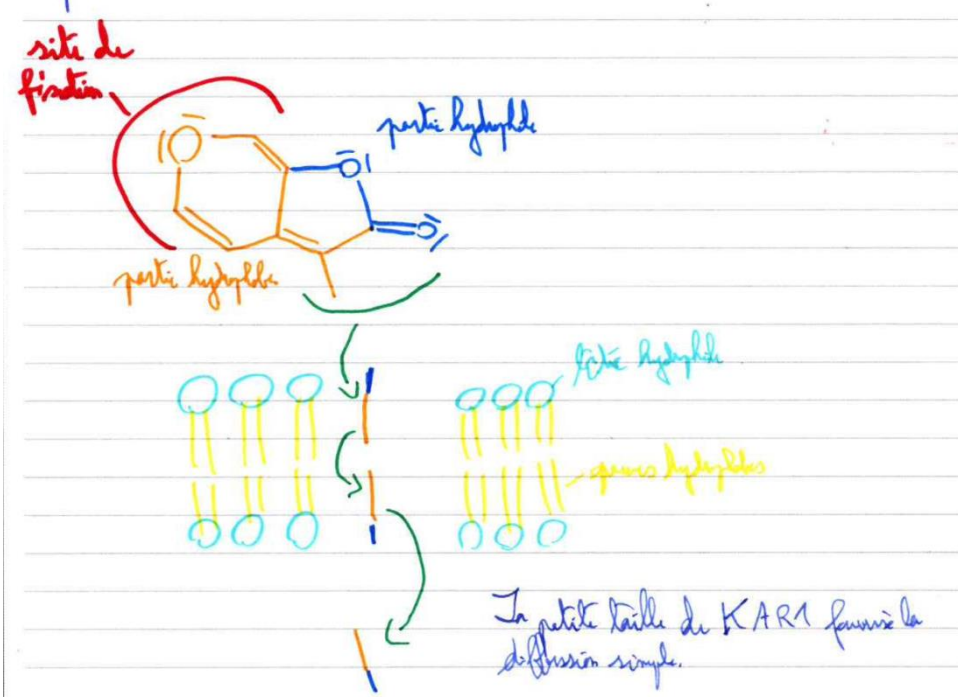 site de
fixation
partie hydrophile
partie hydrophobe
tête hydrophile
queues hydrophobes
La petite taille de KAR1 favorise la
diffusion simple.